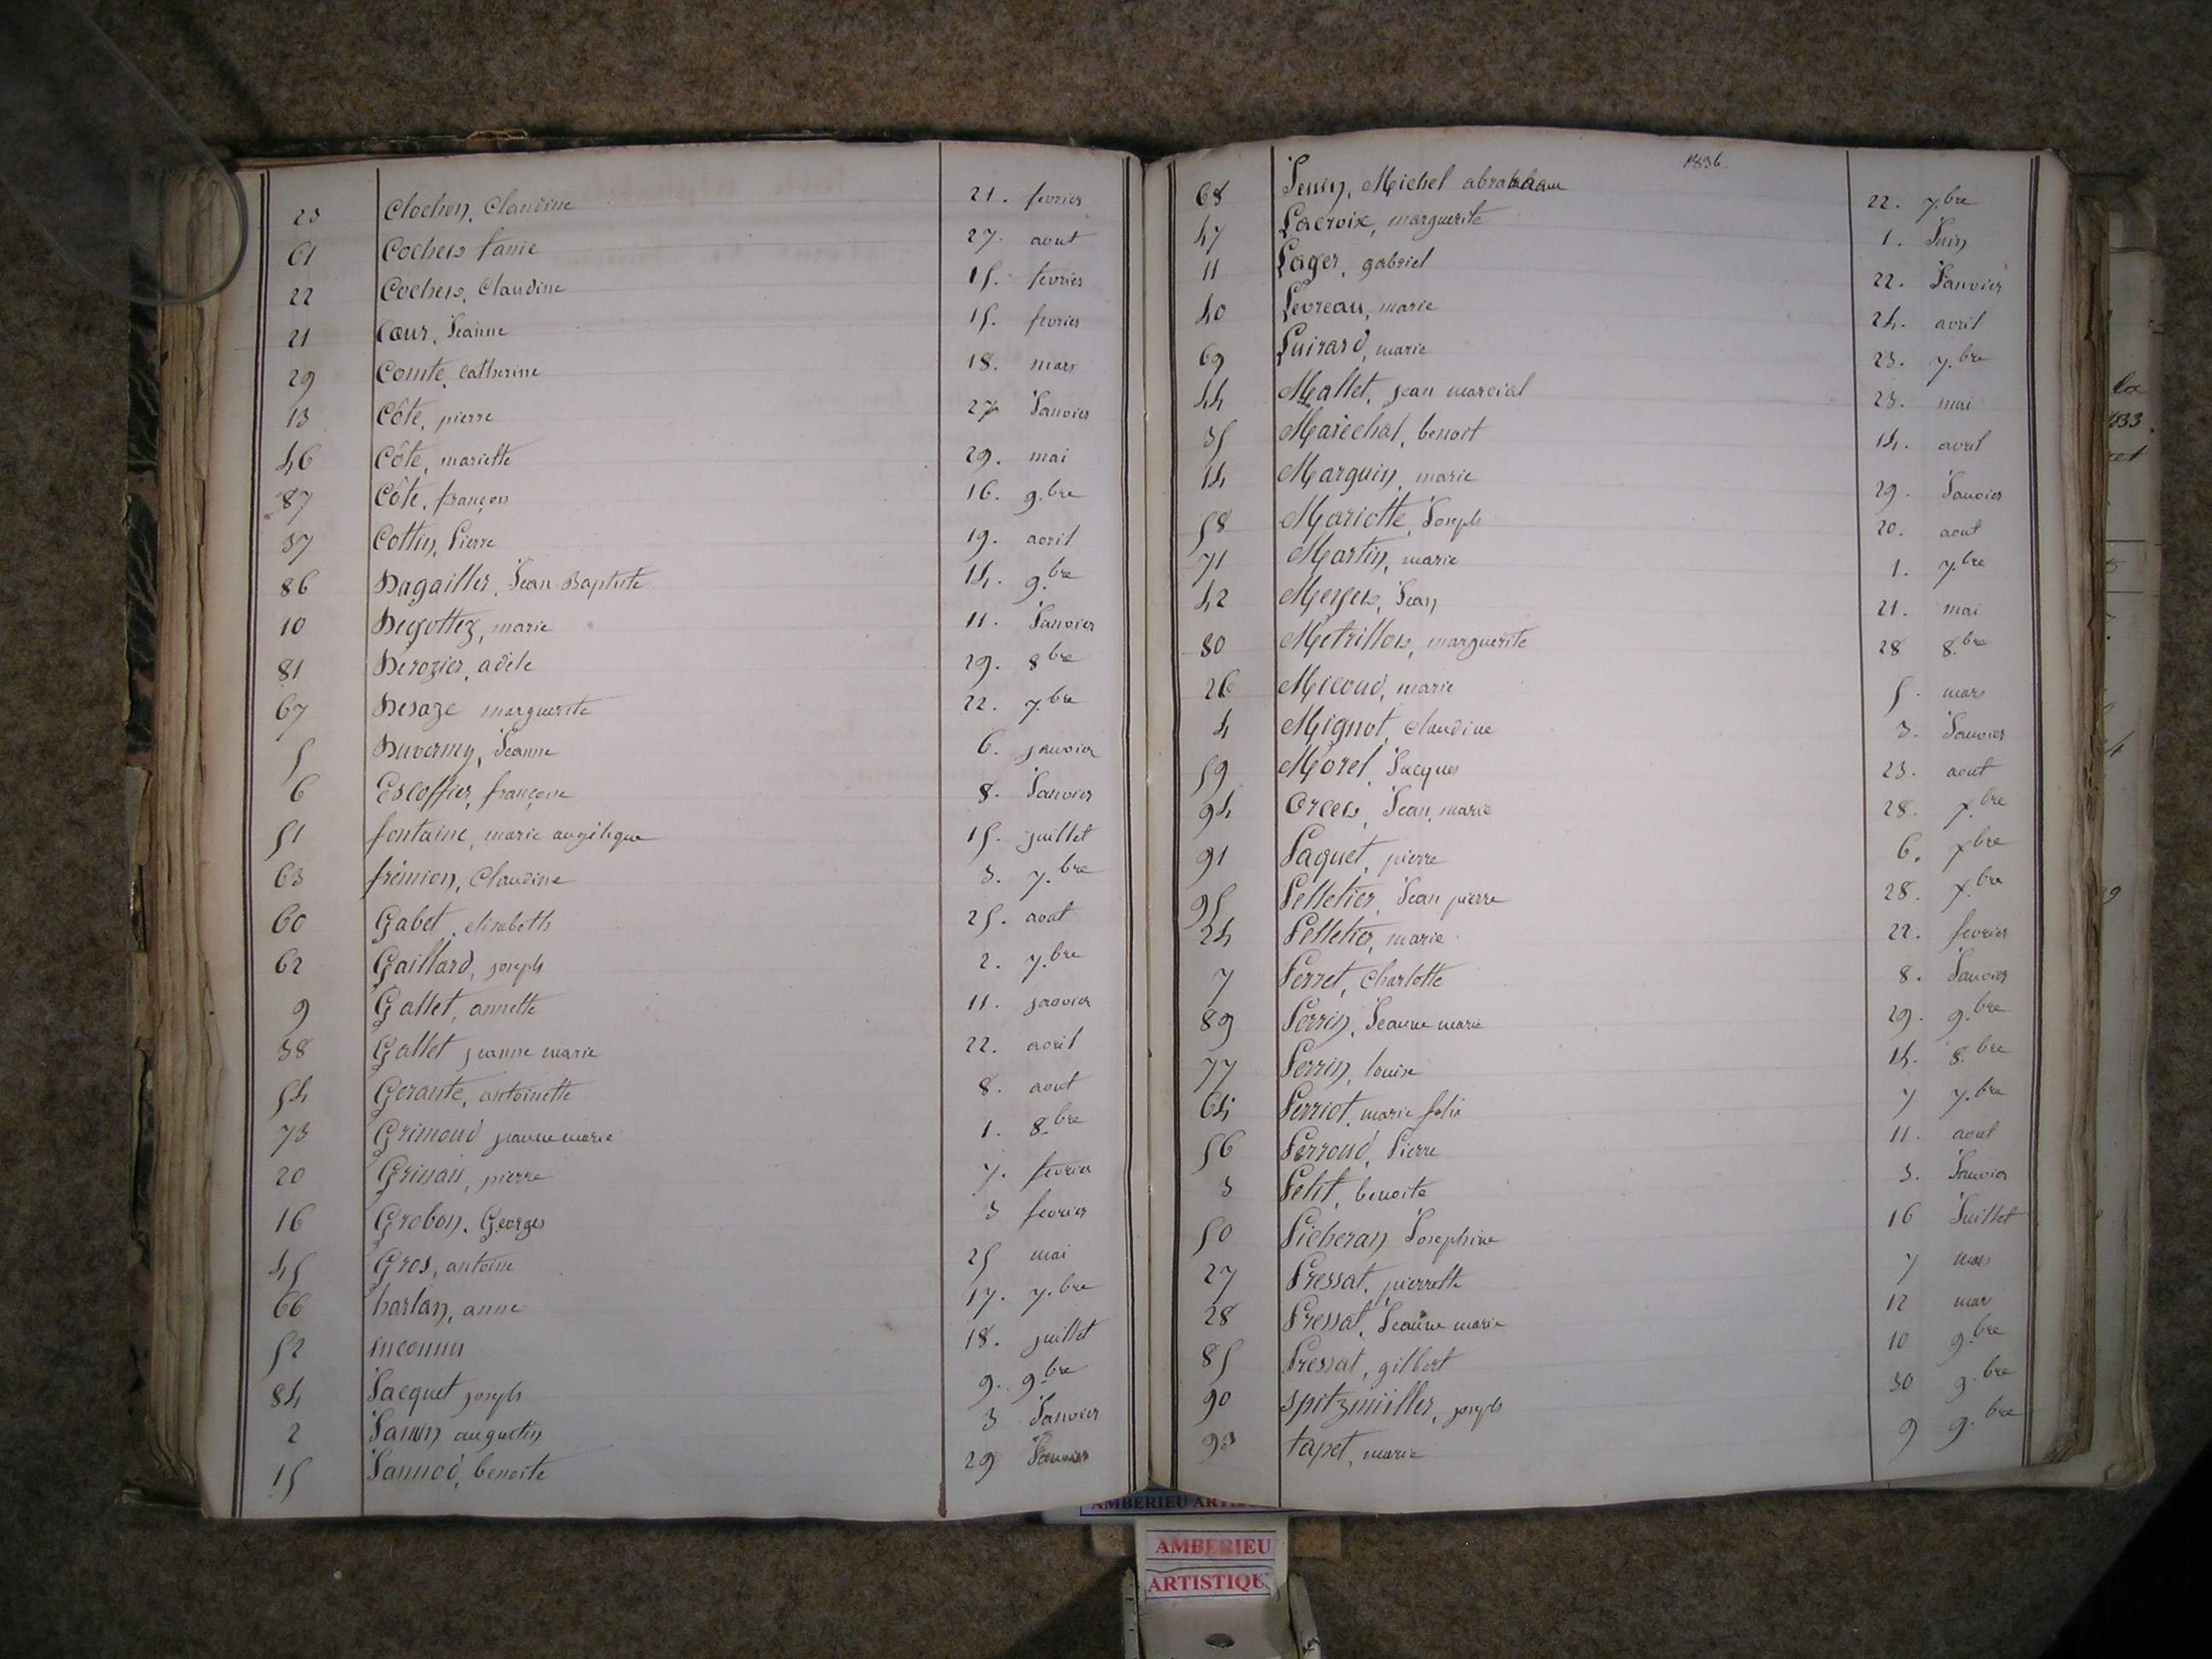 23 Clochon, Claudine 21. fevrier
61 Cochets fanie 27. aout
22 Cochets, Claudine 15. fevrier
21 Cœur, Jeanne 15. fevrier
29 Comte, Catherine 18. mars
13 Côte, pierre 27 Janvier
46 Côte, mariette 29. mai
87 Côte, françois 16. 9.bre
37 Cottin, Pierre 19. avril
86 Dagaillier, Jean Baptiste 14. 9.bre
10 Degottez, marie 11. Janvier
81 Derozier, adele 29. 8bre
67 Desaze marguerite 22. 7.bre
5 Duverny, Jeanne 6. janvier
6 Escoffier, françoise 8. Janvier
51 fontaine, marie angélique 15. juillet
63 frémion, Claudine 3. 7.bre
60 Gabet, elisabeth 25. aout
62 Gaillard, joseph 2. 7.bre
9 Gallet, annette 11. janvier
38 Gallet jeanne marie 22. avril
54 Gerante, antoinette 8. aout
73 Grimoud jeanne marie 1. 8.bre
20 pierre 7. fevrier
16 Grobon, Georges 3 fevrier
45 Gros, antoine 25 mai
66 harlan, anne 17. 7.bre
52 inconnu 18. juillet
84 Jacquet joseph 9. 9.bre
2 Janin augustin 3 Janvier
15 Jannod, benoite 29 Janvier
1836.
68 Jenin, Michel abraham 22. 7.bre
47 Lacroix, marguerite 1. Juin
11 Lager, gabriel 22. Janvier
40 Levreau, marie 24. avril
69 Luirard, marie 23. 7.bre
44 Mallet, jean marcial 23. mai
35 Maréchal, benoit 14. avril
14 Marguin, marie 29. Janvier
58 Mariotte, Joseph 20. aout
71 Martin, marie 1. 7.bre
42 Jean 21. mai
80 marguerite 28 8.bre
26 Micoud, marie 5. mars
4 Mignot, Claudine 3. Janvier
59 Morel, Jacques 23. aout
94 Jean, marie 28. x.bre
91 Paquet, pierre 6. xbre
95 Pelletier, Jean pierre 28. x.bre
24 Pelletier, marie 22. fevrier
7 Perret, Charlotte 8. Janvier
89 Perrin, Jeanne marie 29. 9.bre
77 Perrin, louise 14. 8.bre
64 Perriot, marie felix 7 7.bre
56 Perroud, Pierre 11. aout
3 Petit, benoite 3. Janvier
50 Picheran Josephine 16 Juillet
27 Pressat, pierrette 7 mars
28 Pressat, Jeanne marie 12 mars
85 Pressat, gilbert 10 9.bre
90 Spitzmüller, joseph 30 9.bre
93 tapet, marie 9 9.bre
1833.
AMBERIEU
ARTISTIQU